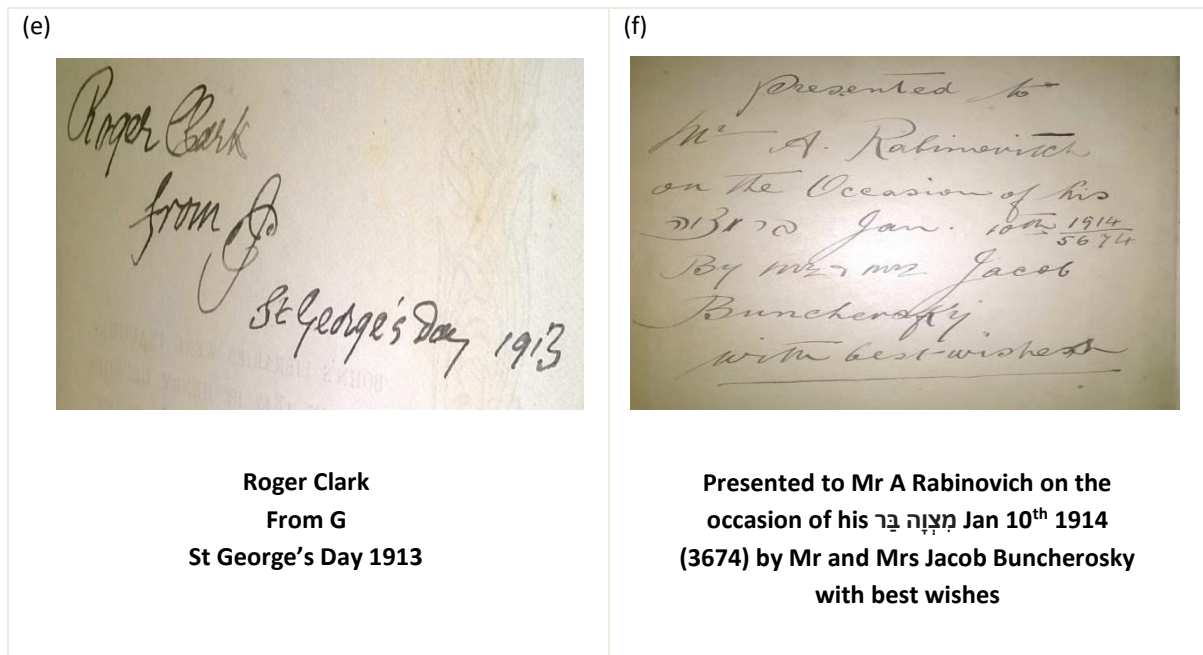 (e)
Roger Clark
from G
St George's Day 1913
Roger Clark
From G
St George’s Day 1913
(f)
presented to
Mr A. Rabinovitch
on the Occasion of his
בר מצוה Jan. 10th 1914
5674
By mr & mrs Jacob
Buncherosky
with best-wishes
Presented to Mr A Rabinovich on the
occasion of his מִצְוָה בַּר Jan 10th 1914
(3674) by Mr and Mrs Jacob Buncherosky
with best wishes